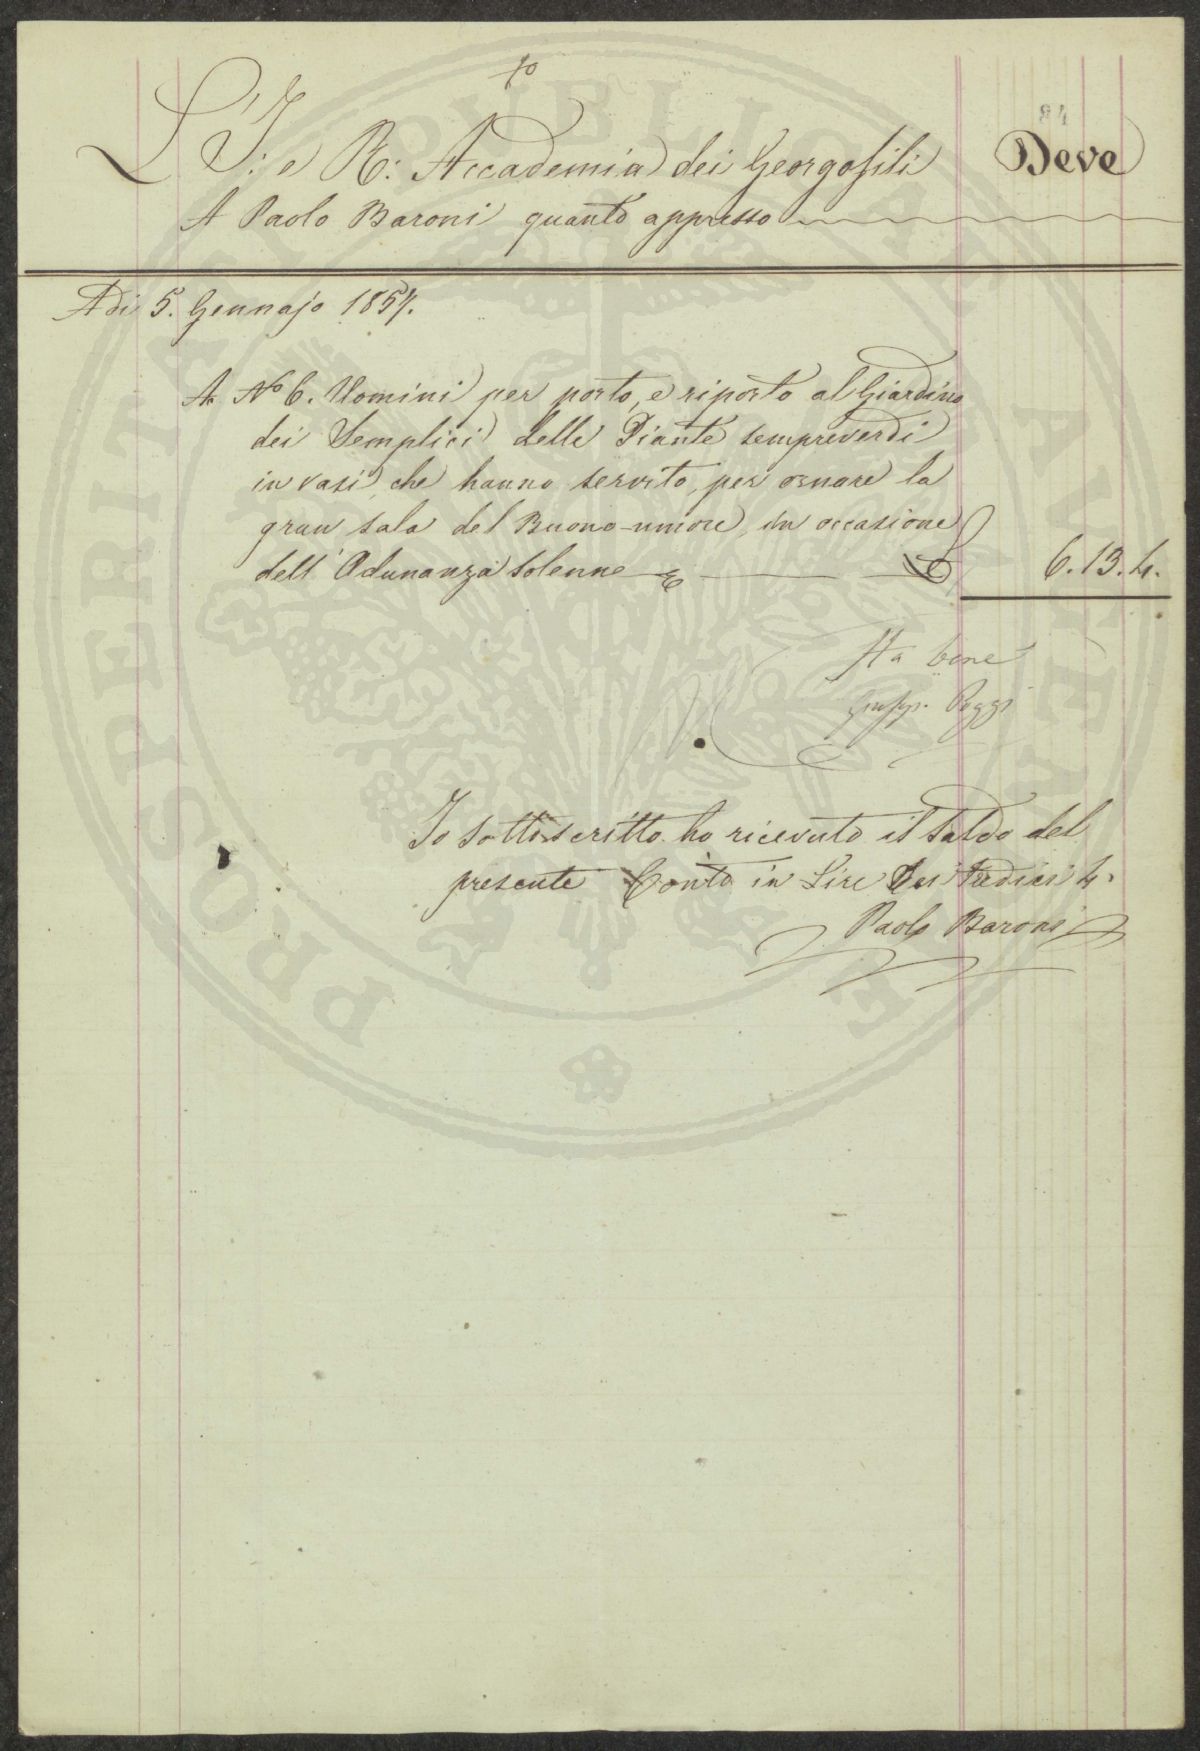 84
L'I: e R: Accademia dei Georgofili Deve
A Paolo Baroni quanto appresso
A dì 5. Gennajo 1857.
A No 6. Uomini per porto, e riporto al Giardino
dei Semplici delle Piante sempreverdi
in vasi, che hanno servito, per ornare la
gran sala del Buono-umore, in occasione
dell'Adunanza solenne 6.13.4.
Sta bene
Poggi
Io sottoscritto ho ricevuto il saldo del
presente Conto in Lire Sei tredici 4.
Paolo Baroni
PROSPERITATI PVBLICAE AVGENDAE